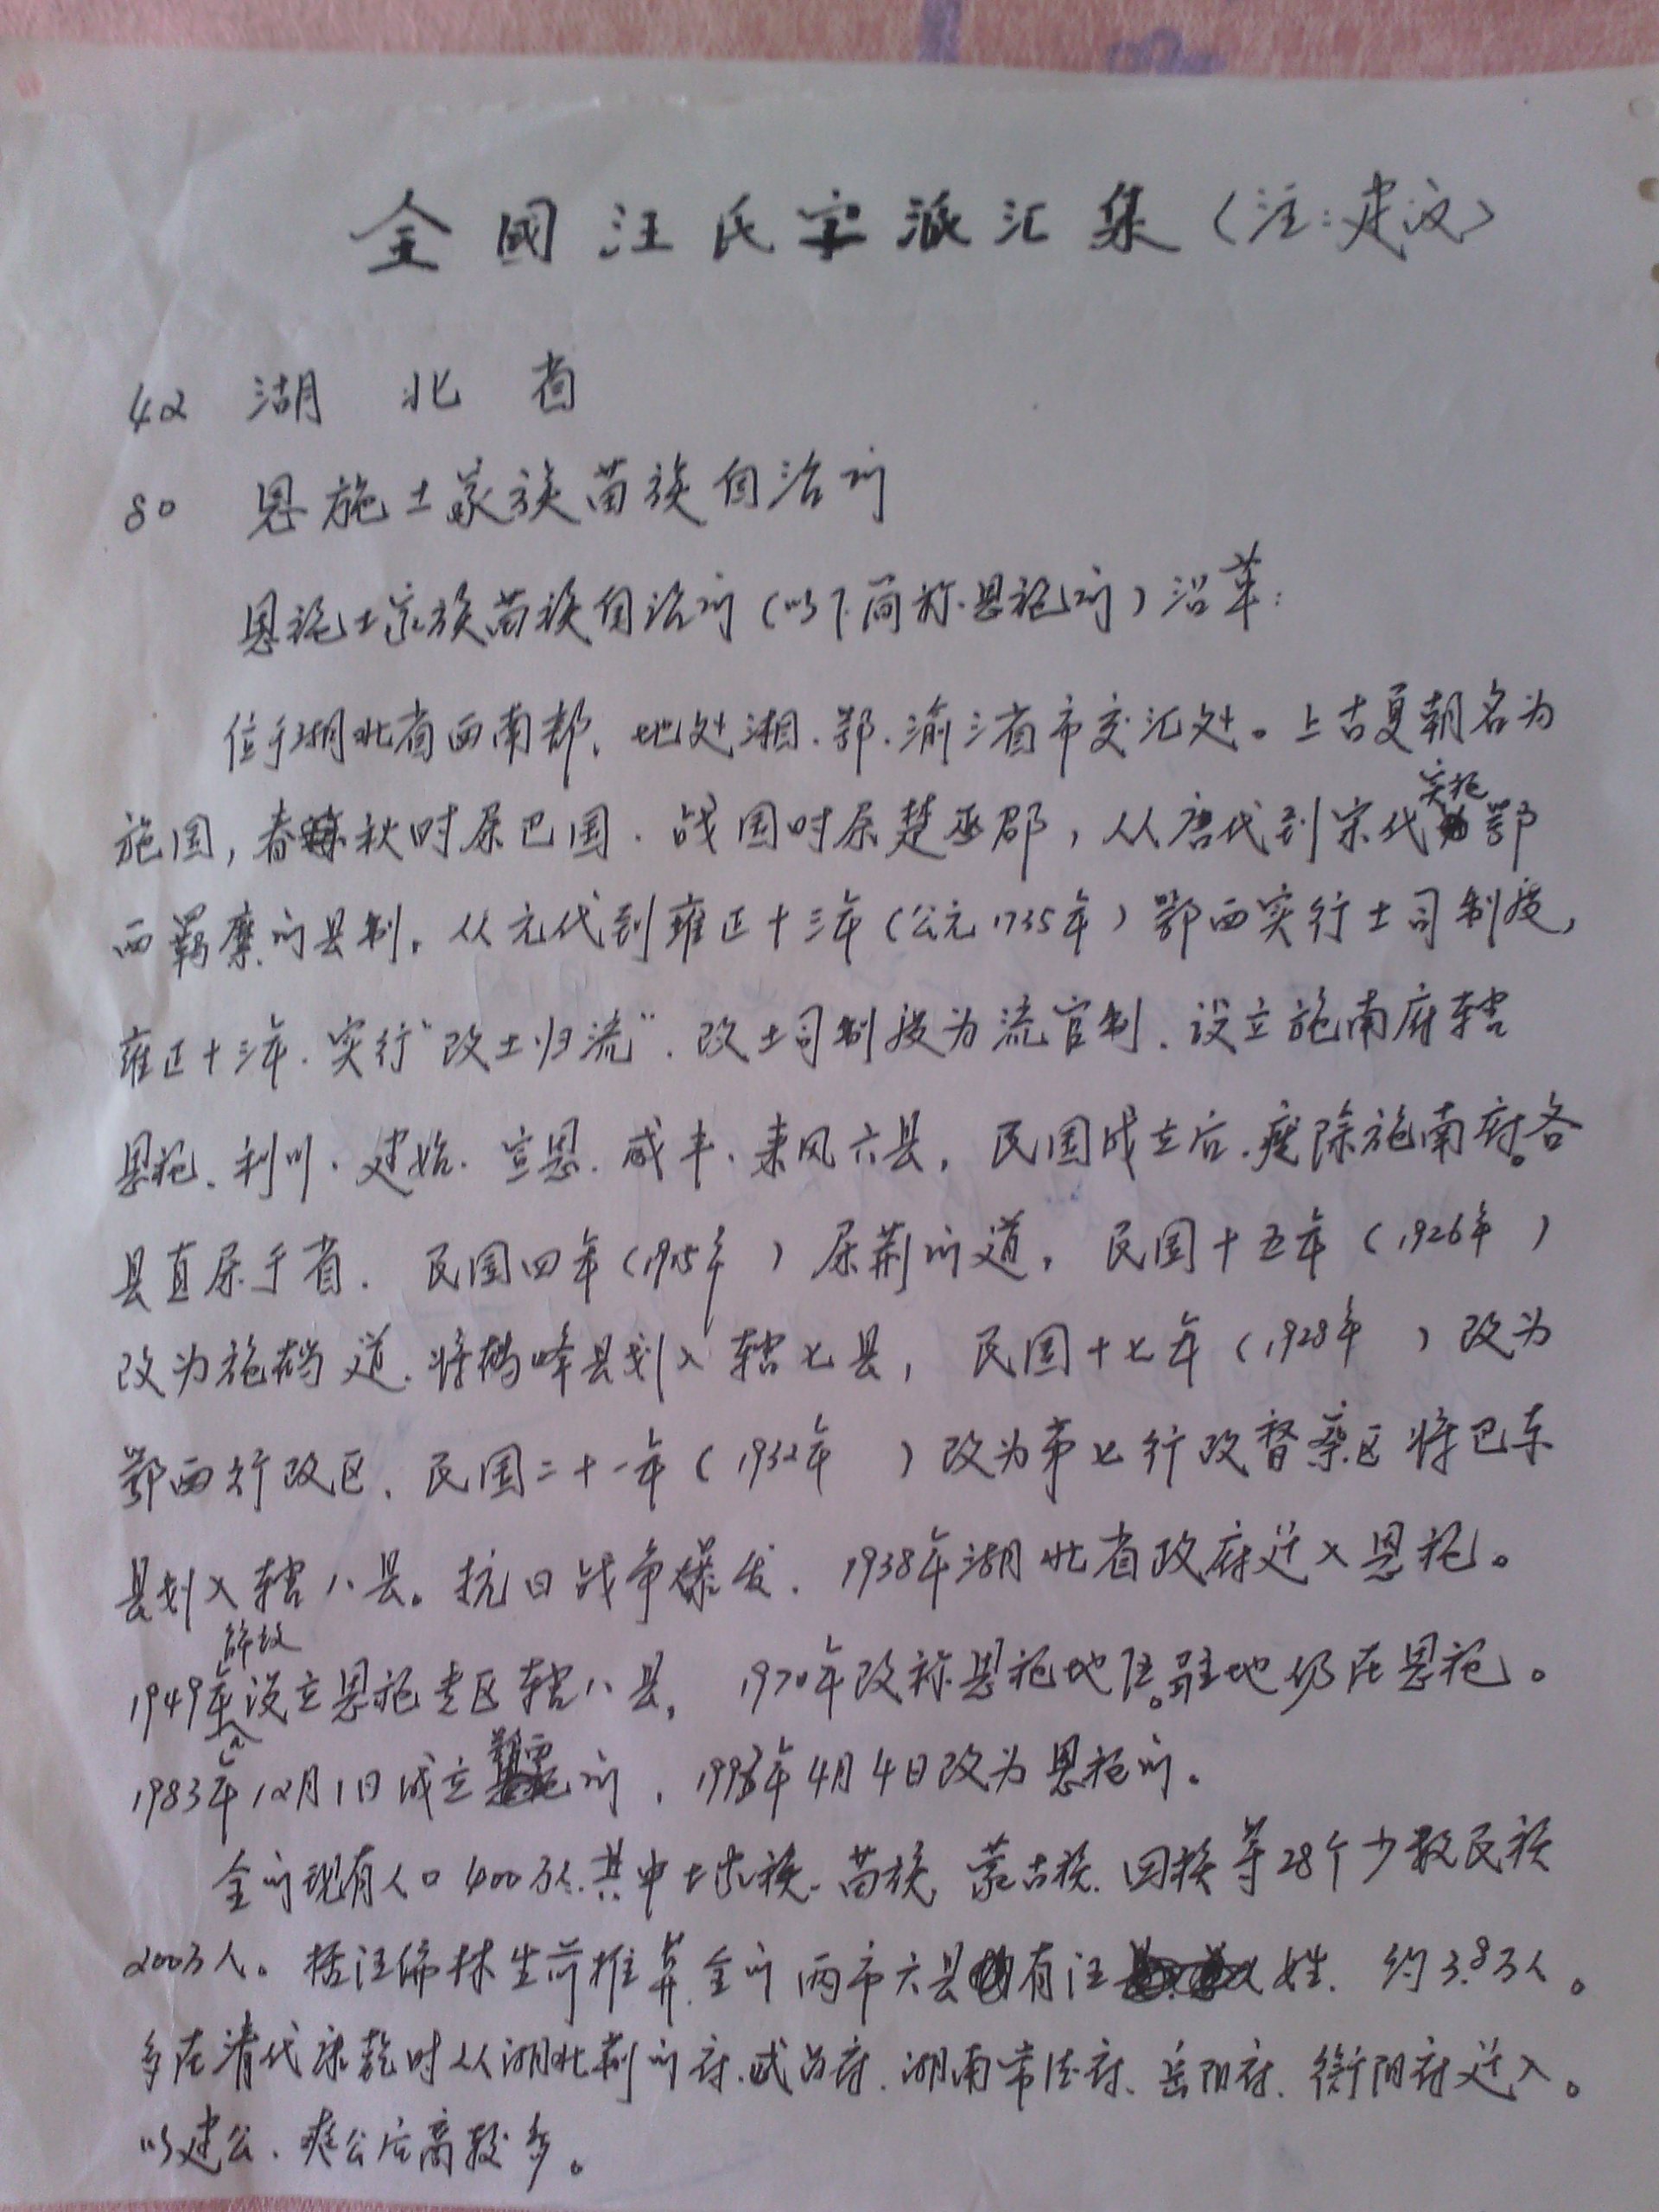 全國汪氏字派汇集（注：建议）
42 湖北省
80 恩施土家族苗族自治州
恩施土家族苗族自治州（以下简称恩施州）沿革：
位于湖北省西南部、地处湘、鄂、渝三省市交汇处。上古夏朝名为
施国，春秋时属巴国、战国时属楚巫郡，从唐代到宋代实施鄂
西羁縻州县制。从元代到雍正十三年（公元1735年）鄂西实行土司制度，
雍正十三年、实行“改土归流”、改土司制度为流官制、设立施南府辖
恩施、利川、建始、宣恩、咸丰、来凤六县。民国成立后、废除施南府。各
县直属于省。民国四年（1915年）属荆州道。民国十五年（1926年）
改为施鹤道、将鹤峰县划入辖七县，民国十七年（1928年）改为
鄂西行政区、民国二十一年（1932年）改为第七行政督察区将巴东
县划入辖八县。抗日战争爆发、1938年湖北省政府迁入恩施。
1949年解放设立恩施专区辖八县，1970年改称恩施地区。驻地仍在恩施。
1983年12月1日成立鄂西州，1993年4月4日改为恩施州。
全州现有人口400万人、其中土家族、苗族、蒙古族、回族等28个少数民族
200万人。括汪儒林生前推算、全州两市六县有汪姓、约3.8万人。
多在清代康乾时从湖北荆州府、武昌府、湖南常德府、岳阳府、衡阳府迁入。
以建公、爽公后裔较多。